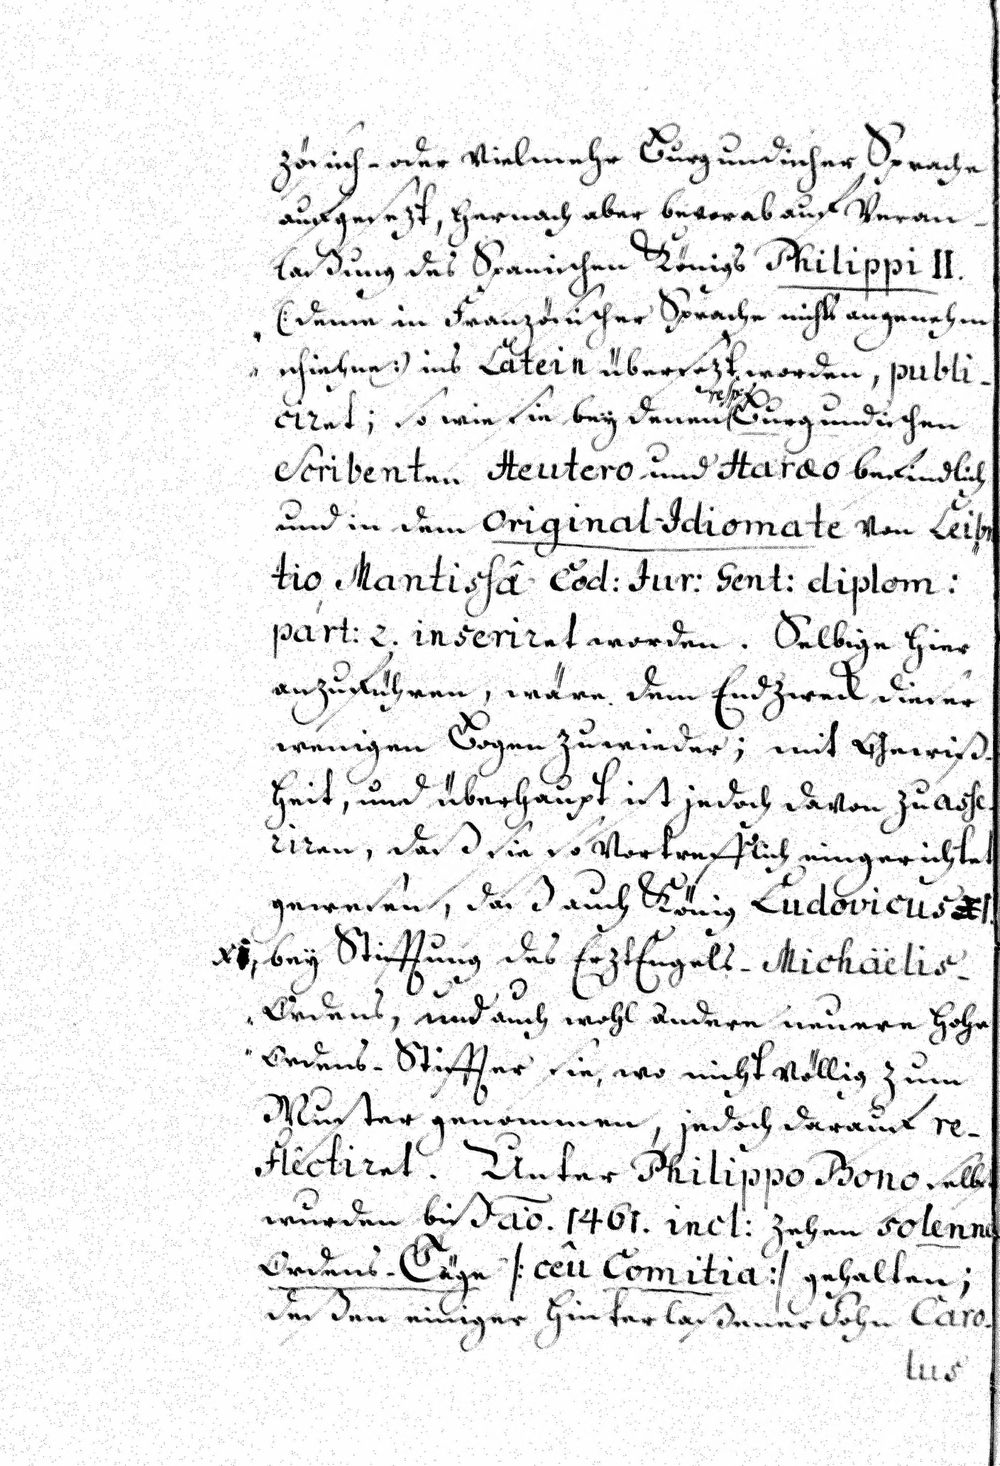 zösisch- oder Vielmehr Burgundischer Sprache
aufgesezt, hernach aber bevorab auf Veran-
laßung des Spanischen Königs Philippi II.
(: deme in Französischer Sprache nichts angenehm
schiene :) ins Latein übersezt worden, publi-
ciret; so wie sie bey denen respe Burgundischen
Scribenten Heutero und Haræo befindlich
und in dem Original-Idiomate von Leibn
tio Mantissâ Cod: Jur: Gent: diplom:
part: 2. inseriret worden. Selbige hier
anzuführen, wäre dem Endzweck dieser
wenigen Bogen zuwieder; mit Gewiß-
heit, und überhaupt ist jedoch davon zu asse-
riren, daß sie so Vortrefflich eingerichtet
gewesen, daß auch König Ludovicus XI.
XI, bey Stifftung des ErztEngels-Michäelis-
Ordens, und auch wohl andere neuere hohe
Ordens-Stiffter sie, wo nicht völlig zum
Muster genommen, jedoch darauf re-
flectiret. Unter Philippo Bono selbst
wurden biß aõ. 1461. incl: zehen solenne
Ordens-Täge /: ceû Comitia :/ gehalten;
deßen einiger hinterlaßener Sohn Caro-
lus